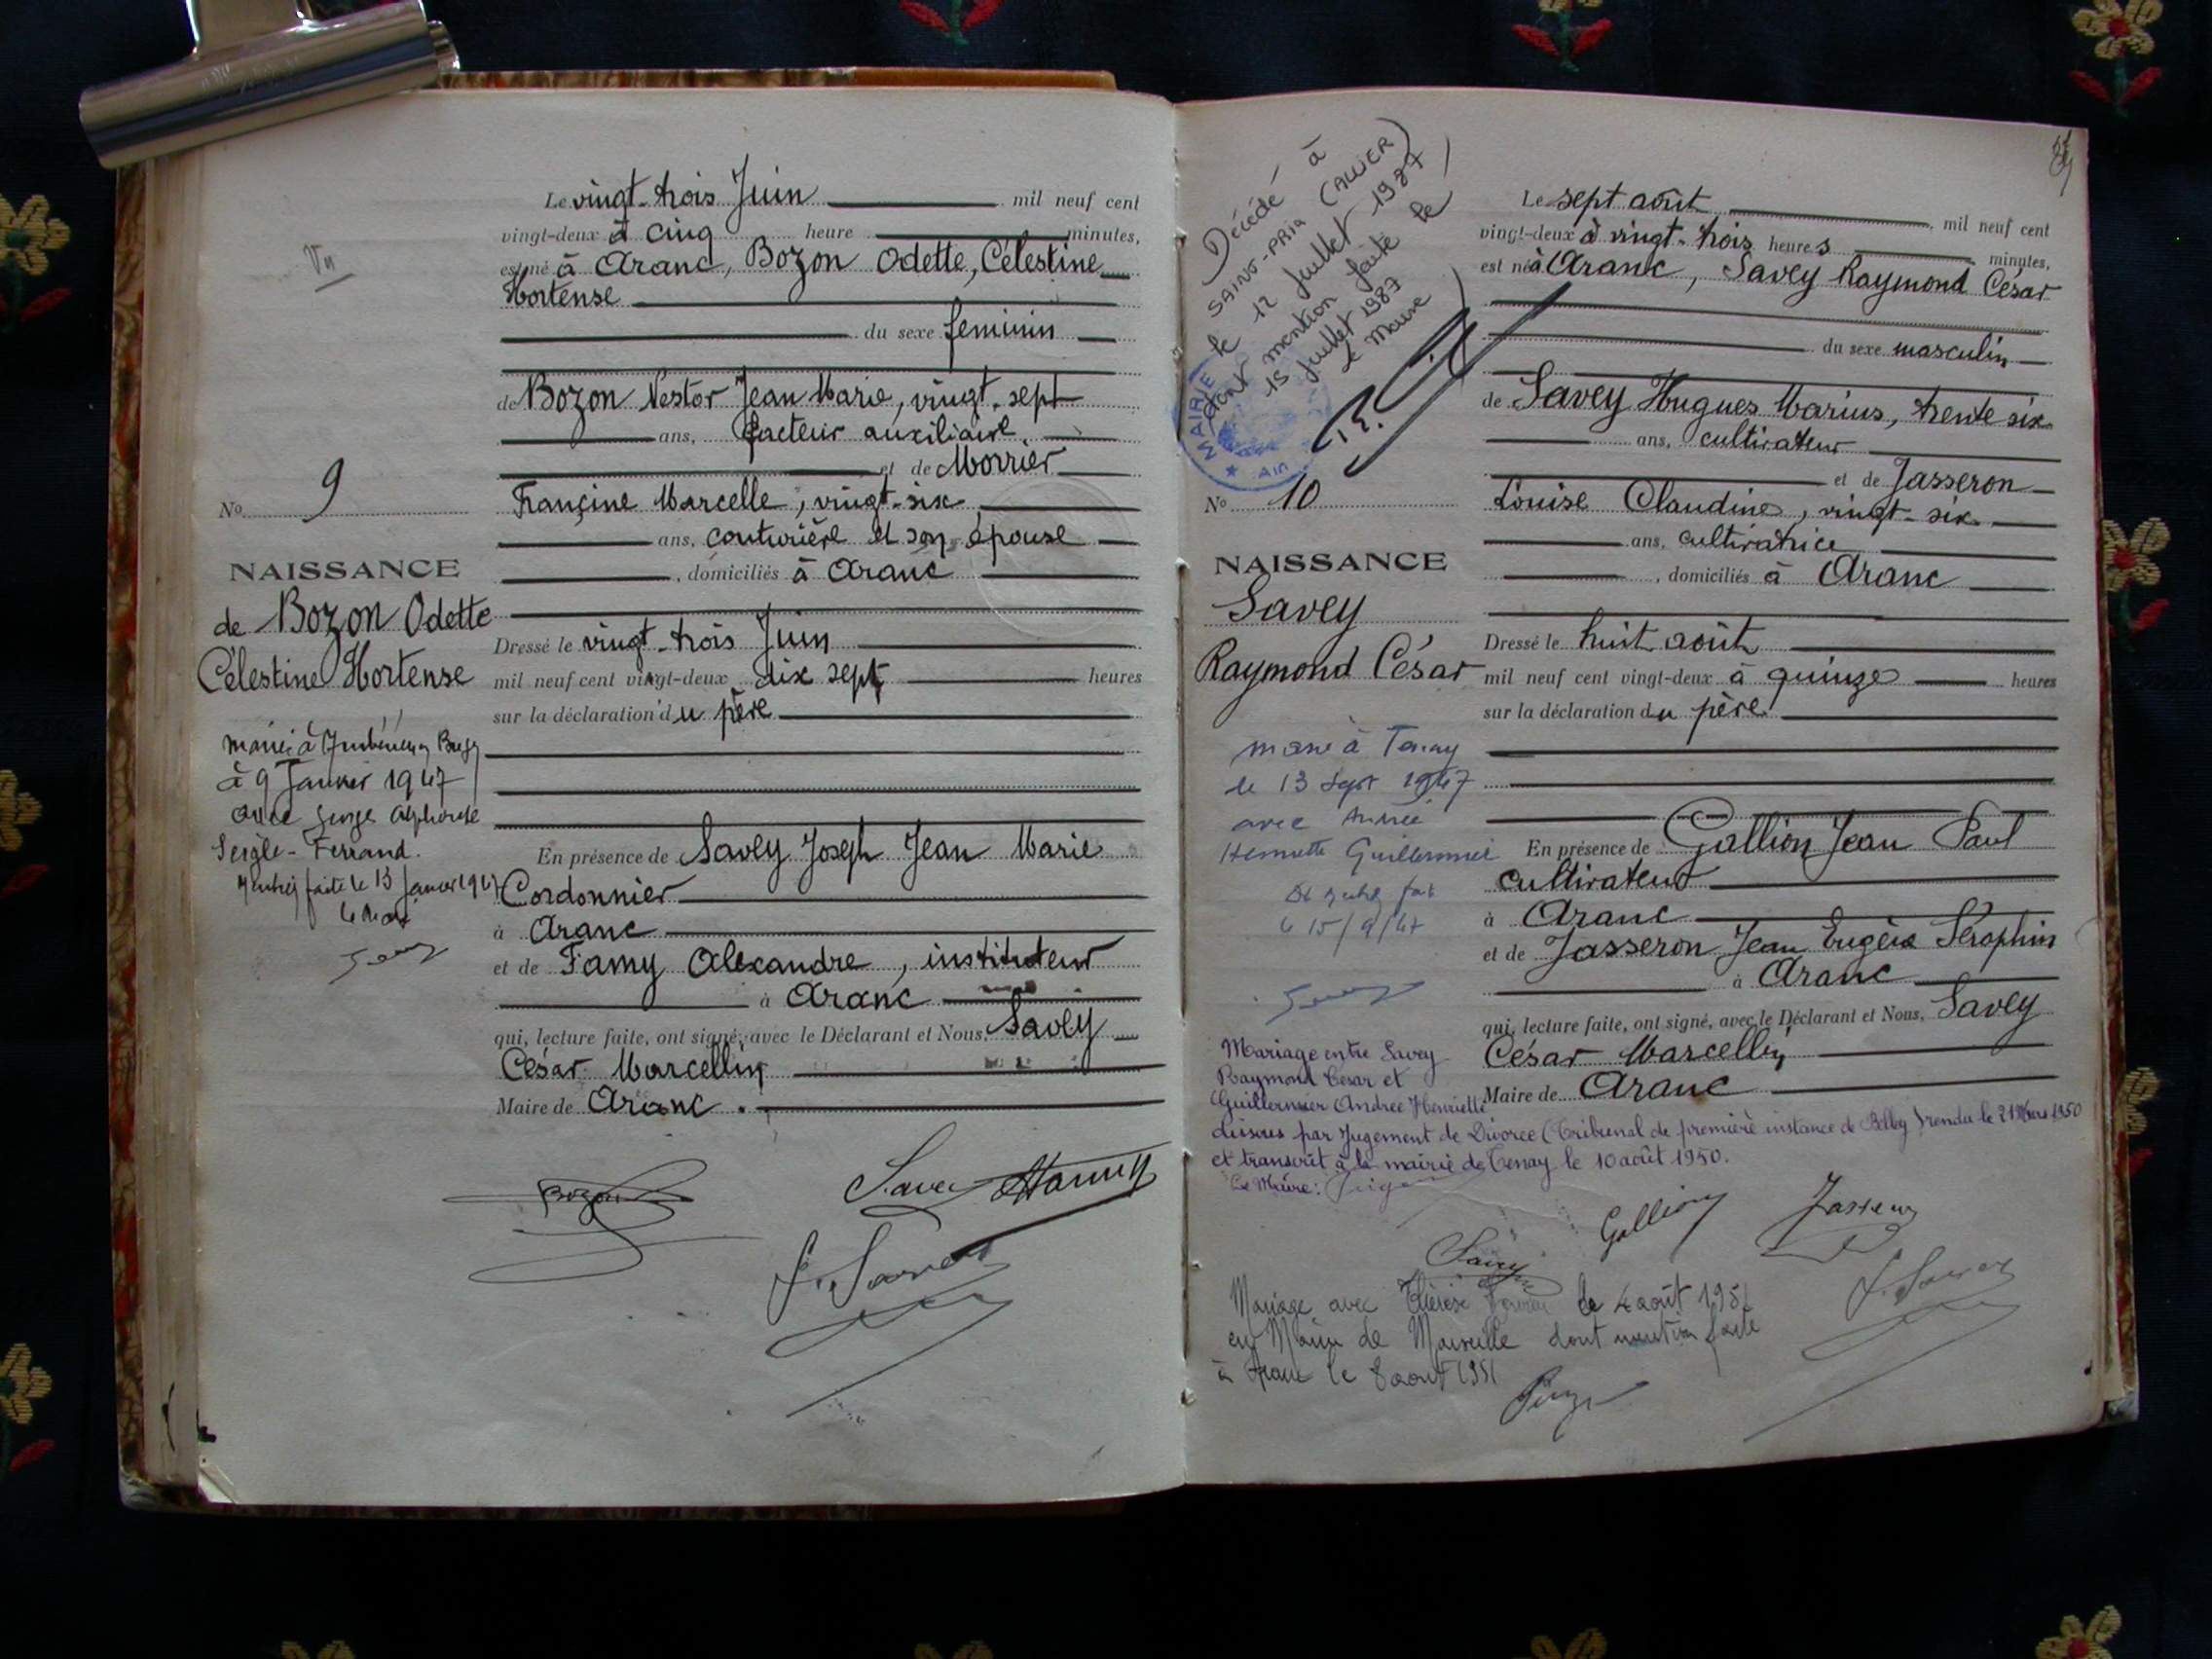 Vu
Le vingt-trois Juin mil neuf cent
vingt-deux à cinq heure minutes,
est né à Aranc, Bozon Odette, Célestine
Hortense
du sexe feminin
de Bozon Nestor Jean Marie, vingt-sept
ans, facteur auxiliaire,
et de Morrier
Françine Marcelle, vingt-six
ans, couturière et son épouse
, domiciliés à Aranc
Dressé le vingt-trois Juin
mil neuf cent vingt-deux dix sept heures
sur la déclaration du père
En présence de Savey Joseph Jean Marie
Cordonnier
à Aranc
et de Famy Alexandre, instituteur
à Aranc
qui, lecture faite, ont signé, avec le Déclarant et Nous, Savey
César Marcellin
Maire de Aranc.
Bozon
Savey
J. Savey
No 9
NAISSANCE
de Bozon Odette
Célestine Hortense
à 9 Janvier 1947
Alphonse
Seigle-Ferrand.
faite le 13 Janvier 1947
Décédé à
SAINT-PRIX (ALLIER)
le 12 Juillet 1987
dont mention faite le
15 Juillet 1987
Le Maire
MAIRIE
AIN
No 10
NAISSANCE
Savey
Raymond César
marié à Tenay
le 13 Sept 1947
avec Andrée
Henriette Guillermier
le 15/9/47
Le sept août mil neuf cent
vingt-deux à vingt-trois heures minutes,
est né à Aranc, Savey Raymond César
du sexe masculin
de Savey Hugues Marius, trente six
ans, cultivateur
et de Jasseron
Louise Claudine, vingt-six
ans, cultivatrice
, domiciliés à Aranc
Dressé le huit août
mil neuf cent vingt-deux à quinze heures
sur la déclaration du père
En présence de Gallion Jean Paul
cultivateur
à Aranc
et de Jasseron Jean Eugène Séraphin
à Aranc
qui, lecture faite, ont signé, avec le Déclarant et Nous, Savey
César Marcellin
Maire de Aranc
Mariage entre Savey
Raymond Cesar et
Guillermier Andrée Henriette
dissous par Jugement de Divorce (Tribunal de première instance de Belley) rendu le 21 Mars 1950
et transcrit à la mairie de Tenay le 10 août 1950.
Le Maire:
Gallion
Jasseron
Savey
J. Savey
Mariage avec Thérèse le 4 août 1951
en Mairie de Marseille dont mention faite
à Aranc le 8 août 1951